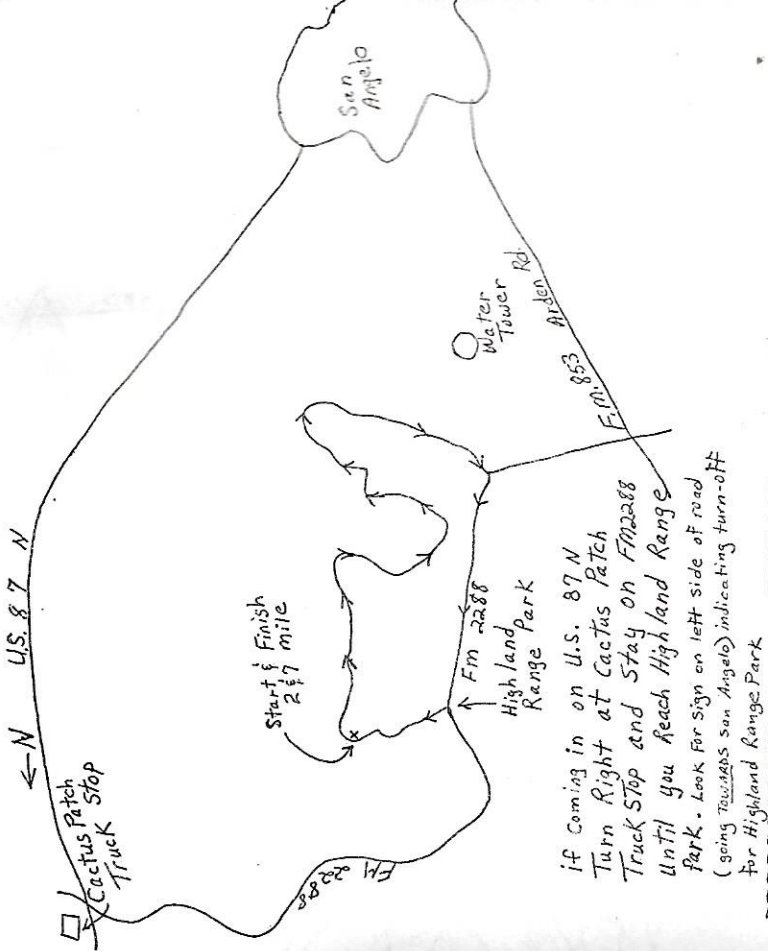 ← N   U.S. 87 N
Cactus Patch
Truck Stop
San
Angelo
Start & Finish
2 & 7 mile
Water
Tower
F.M. 853   Arden Rd.
FM 2288
Fm 2288
Highland
Range Park
if coming in on U.S. 87 N
Turn Right at Cactus Patch
Truck Stop and Stay on FM2288
until you Reach Highland Range
Park. Look For sign on left side of road
(going TOWARDS san Angelo) indicating turn-off
for Highland Range Park